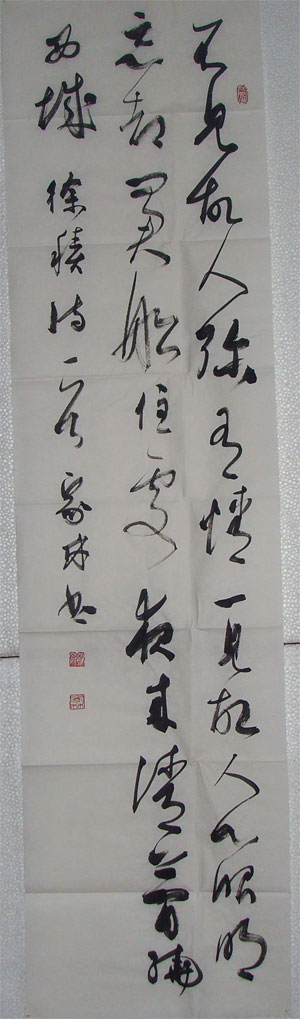 不見故人弥有情一見故人心眼明
忘却問君船住處夜來清夢繞
西城 徐積詩一首 書